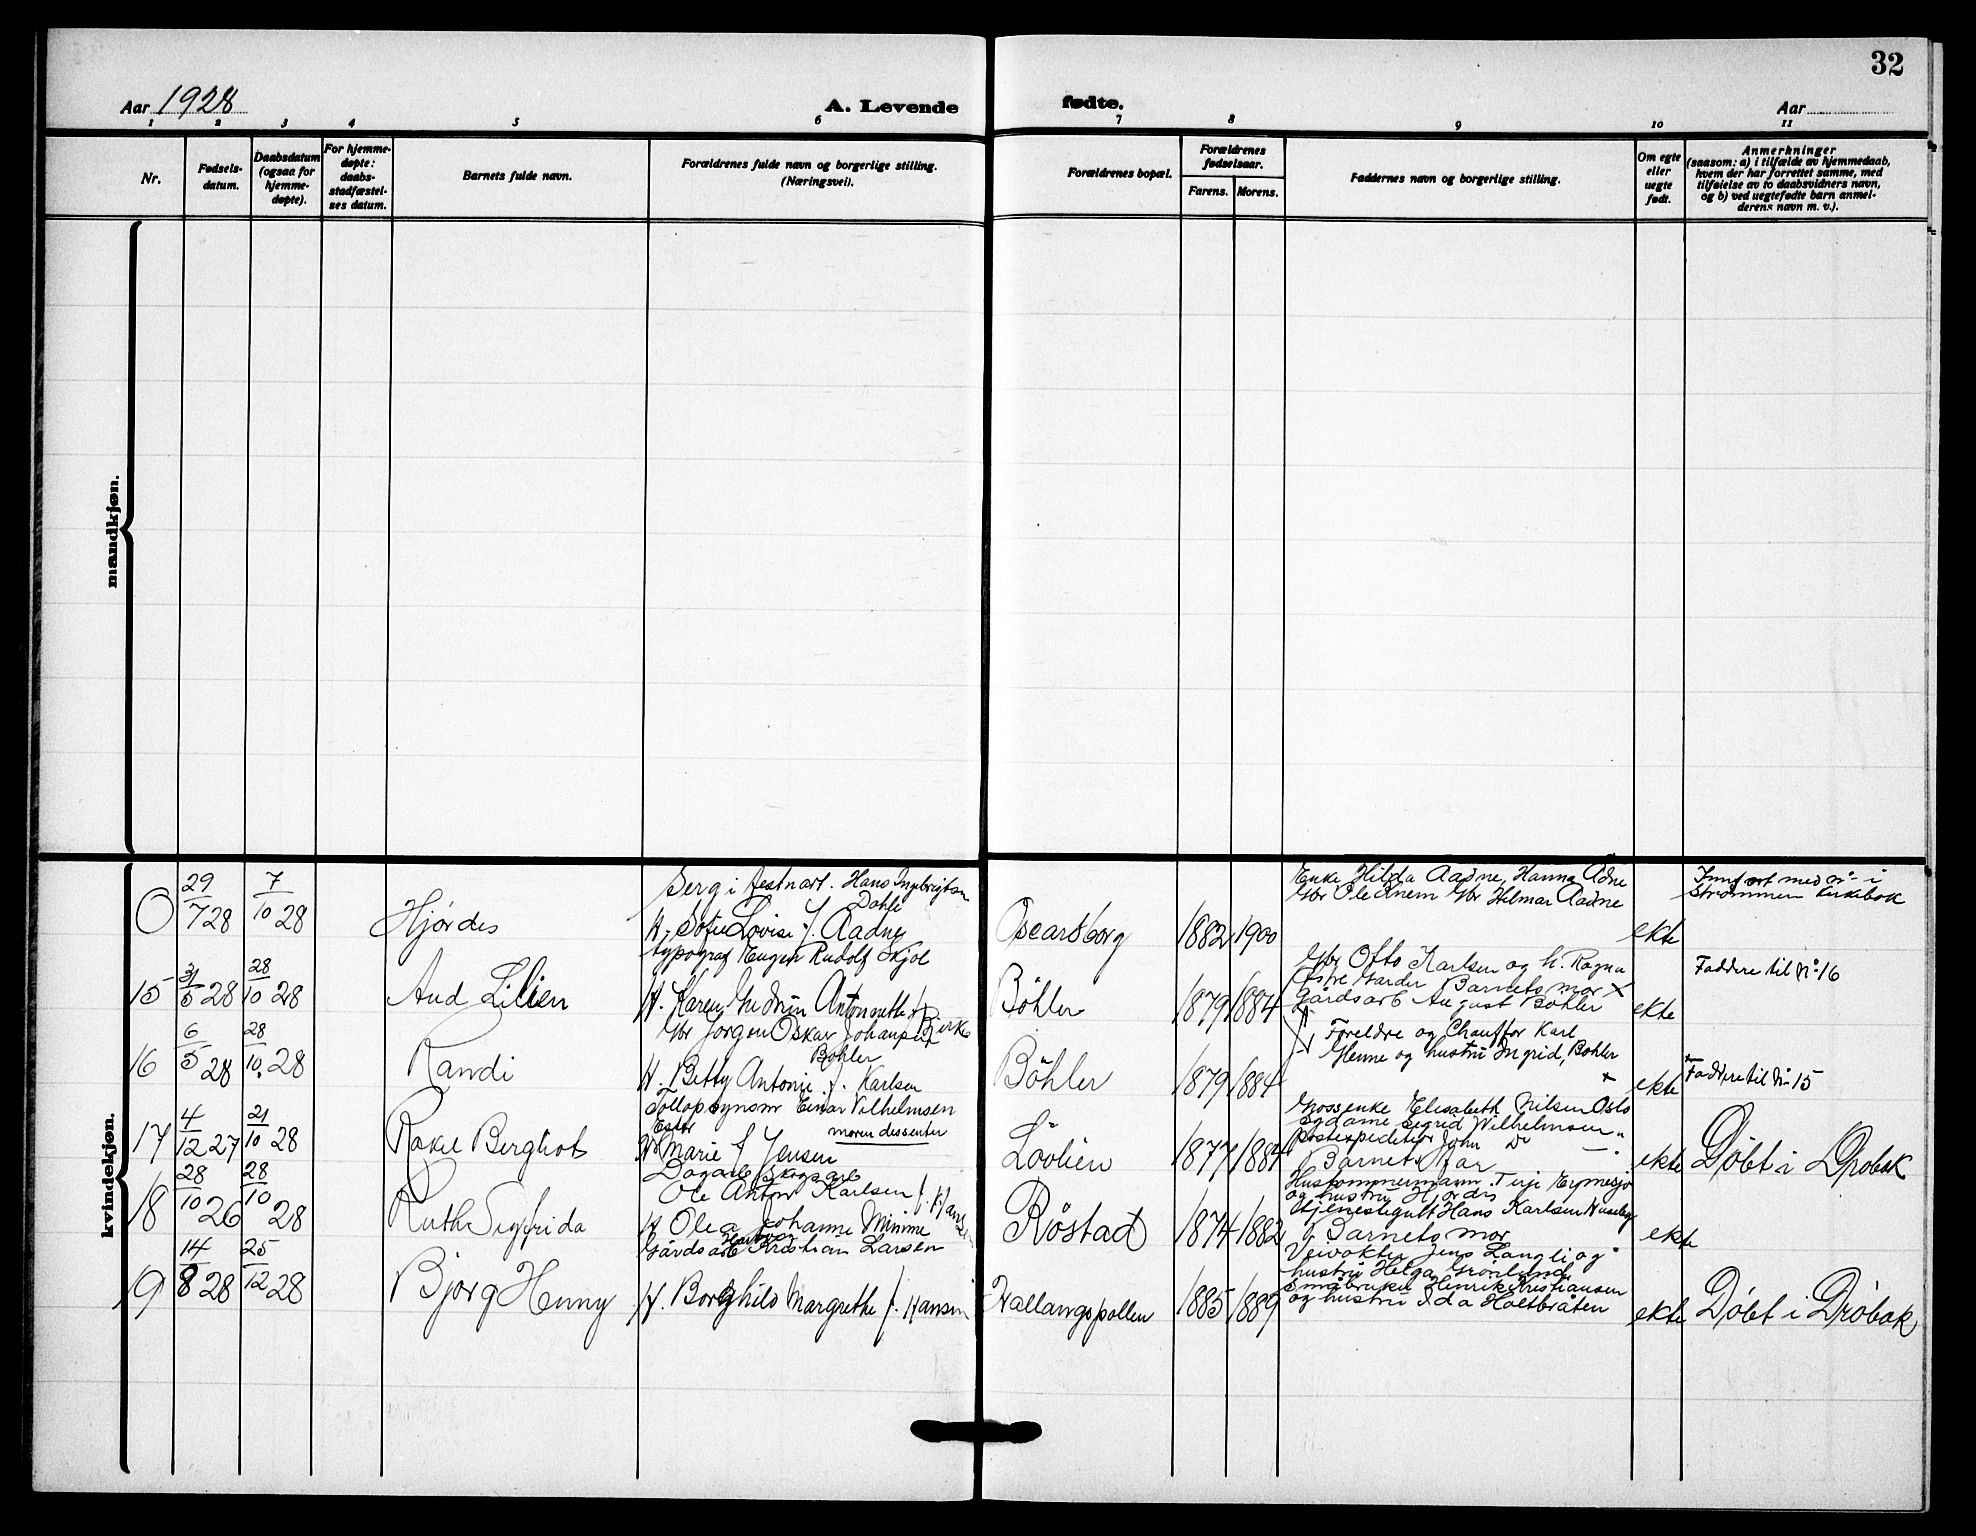 32
Aar 1928
A. Levende
fødte.
Aar
1 2 3 4 5 6 7 8 9 10 11
Nr.
Fødsels-
datum.
Daabsdatum
(ogsaa for
hjemme-
døpte).
For hjemme-
døpte:
daabs-
stadfæstel-
ses datum.
Barnets fulde navn.
Forældrenes fulde navn og borgerlige stilling.
(Næringsvei).
Forældrenes bopæl.
Forældrenes
fødselsaar.
Farens. Morens.
Faddernes navn og borgerlige stilling.
Om egte
eller
uegte
født.
Anmerkninger
(saasom: a) i tilfælde av hjemmedaab,
hvem der har forrettet samme, med
tilføielse av to daabsvidners navn,
og b) ved uegtefødte barn anmel-
derens navn m. v.).
mandkjøn.
kvindekjøn.
0 29/7 28 7/10 28
Hjørdes
Serg i festnart. Hans Ingebrigtsen
Dahle
H. Sofie Lovise f. Aadne
Oscarsborg
1882 1900
Enke Hilda Aadne, Hanna Adne
Gbr Ole Knem Gbr Hilmar Aadne
ekte
Innført med nº - i
Strømmen kirkebok
15 31/5 28 28/10 28
Aud Lilien
typograf Eugen Rudolf Skjol
H. Karen Gudrun Antonette f.
Birke
Böhler
1879 1884
Gbr Otto Karlsen og h. Ragna
Østre Garder Barnets mor x
Gårdsarb August Böhler
ekte
Faddere til Nº 16
16 6/5 28 28/10. 28
Randi
Gbr Jørgen Oskar Johansen
Böhler
H. Betty Antonie f. Karlsen
Böhler
1879 1884
Foreldre og Chauffør Karl
Glenne og hustru Ingrid, Bohler
x
ekte
Faddere til Nº 15
17 4/12 27 21/10 28
Rakel Bergliot
Tollopsynsm Einar Vilhelmsen
Ester
moren dessenter
H Marie f Jensen
Lövlien
1877 1884
Grossenke Elisabeth Nilsen Oslo
Sydame Sigrid Wilhelmsen "
Postexpeditør John Do —
Barnets far
ekte
Döbt i Dröbak
18 28/10 26 28/10 28
Ruth Sigfrida
Dagarb/Skogsarb
Ole Anton Karlsen
H Olea Johanne Minime f. Hansen
Röstad
1874 1882
og hustru Hjordis
Tjenestegutt Hans Karlsen Huseby
Barnets mor
ekte
19 14/8 28 25/12 28
Bjørg Henny
Gårdsarb Kristian Larsen
H. Borghild Margrethe f. Hansen
Hallangspollen
1885 1889
Veivokter Jens Langli og
hustru Helga Grönlund
Småbruker Henrik Kristiansen
og hustru Ida Holtbråten
ekte
Döbt i Dröbak